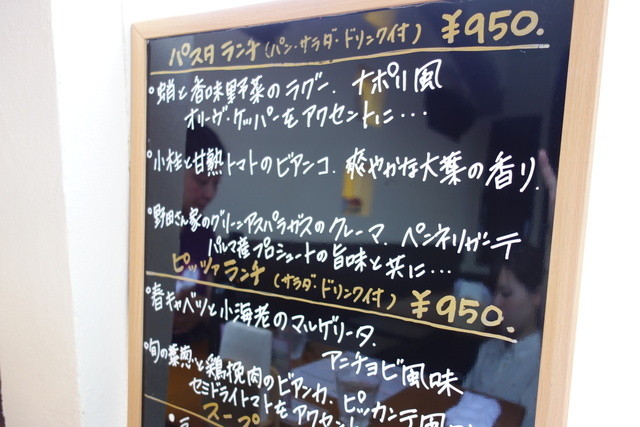 パスタ ランチ (パン・サラダ・ドリンク付) ¥950.
・蛸と香味野菜のラグー. ナポリ風
オリーヴ・ケッパーをアクセントに…
・小柱と甘熟トマトのビアンコ. 爽やかな大葉の香り.
・野田さん家のグリーンアスパラガスのクレーマ. ペンネリガーテ
パルマ産プロシュートの旨味と共に…
ピッツァランチ (サラダ・ドリンク付) ¥950.
・春キャベツと小海老のマルゲリータ.
アンチョビ風味
・旬の葉葱と鶏挽肉のビアンカ. ピッカンテ風
セミドライトマトをアクセント
スープ